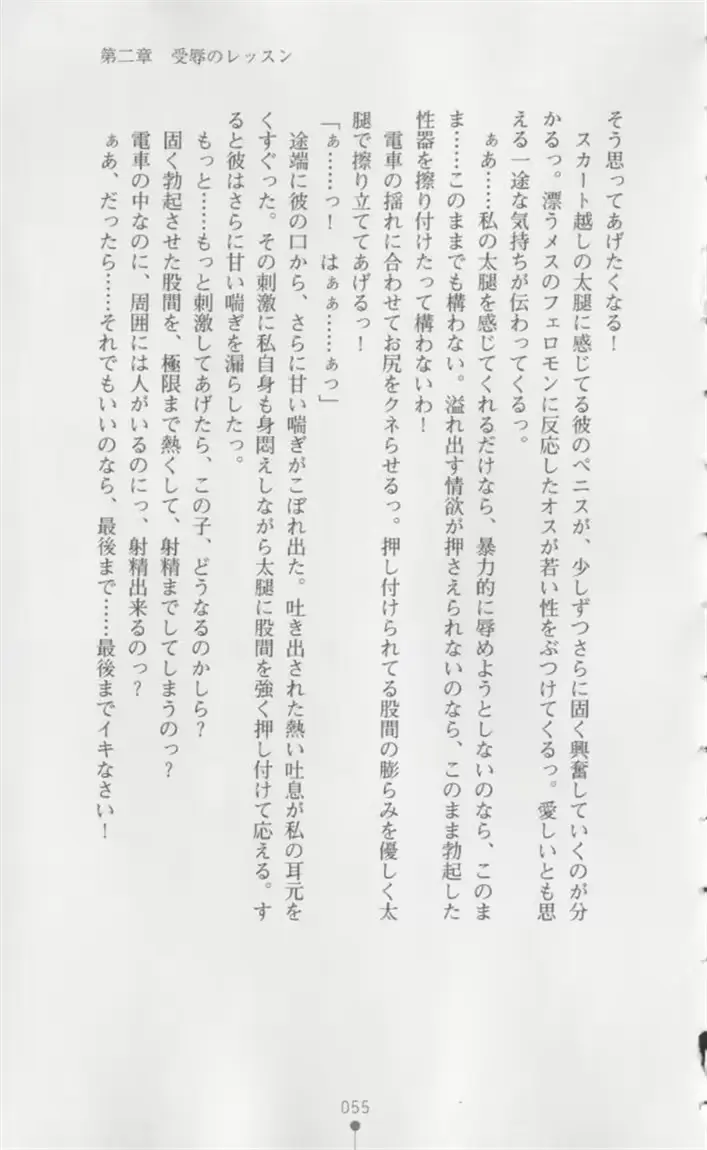 第二章　受辱のレッスン
そう思ってあげたくなる！
　スカート越しの太腿に感じてる彼のペニスが、少しずつさらに固く興奮していくのが分
かるっ。漂うメスのフェロモンに反応したオスが若い性をぶつけてくるっ。愛しいとも思
える一途な気持ちが伝わってくるっ。
　ぁあ……私の太腿を感じてくれるだけなら、暴力的に辱めようとしないのなら、このま
ま……このままでも構わない。溢れ出す情欲が押さえられないのなら、このまま勃起した
性器を擦り付けたって構わないわ！
　電車の揺れに合わせてお尻をクネらせるっ。押し付けられてる股間の膨らみを優しく太
腿で擦り立ててあげるっ！
「ぁ……っ！　はぁぁ……ぁっ」
　途端に彼の口から、さらに甘い喘ぎがこぼれ出た。吐き出された熱い吐息が私の耳元を
くすぐった。その刺激に私自身も身悶えしながら太腿に股間を強く押し付けて応える。す
ると彼はさらに甘い喘ぎを漏らしたっ。
　もっと……もっと刺激してあげたら、この子、どうなるのかしら？
　固く勃起させた股間を、極限まで熱くして、射精までしてしまうのっ？
　電車の中なのに、周囲には人がいるのにっ、射精出来るのっ？
　ぁあ、だったら……それでもいいのなら、最後まで……最後までイキなさい！
055